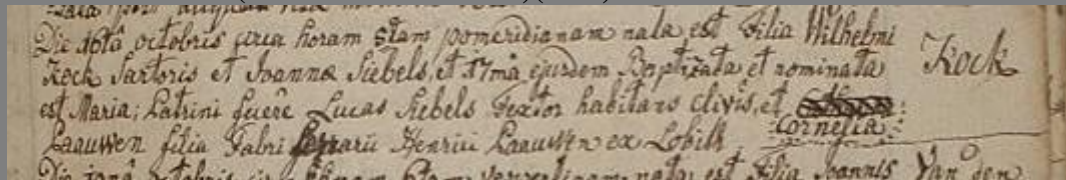 Die 16ta octobris circa horam 5tam pomeridianam nata est Filia Wilhelmi
Kock Sartoris et Joannæ Siebels, et 17ma ejusdem Baptizata et nominata Kock
est Maria; Patrini fuere Lucas Siebels Textor habitans Clivis, et
Cornelia
Laauwen filia Fabri ferrarii Henrici Laauwen ex Lobith
octobris nata est Filia Joannis Van den